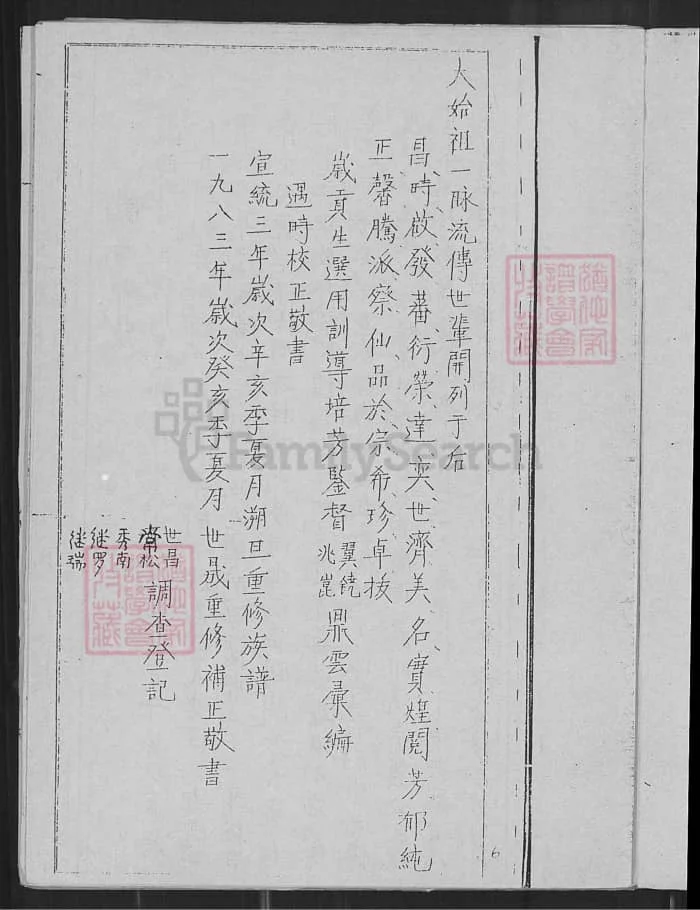 大始祖一脉流傳世輩開列于后
昌時啟發蕃衍榮達奕世濟美名實煌閱芳郁純
正馨騰派察仙品於宗希珍卓拔
歲貢生選用訓導培芳鑒督翼
兆崑鼎雲彙編
遇時校正敬書
宣統三年歲次辛亥季夏月溯旦重修族譜
一九八三年歲次癸亥季夏月世晟重修補正敬書
世昌
常松
秀南
继罗
继瑞
調查登記
6
FamilySearch